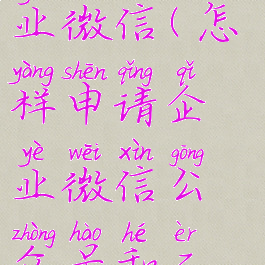 业微信(怎
yàng shēn qǐng qǐ
样申请企
yè wēi xìn gōng
业微信公
zhòng hào hé èr
众号和二